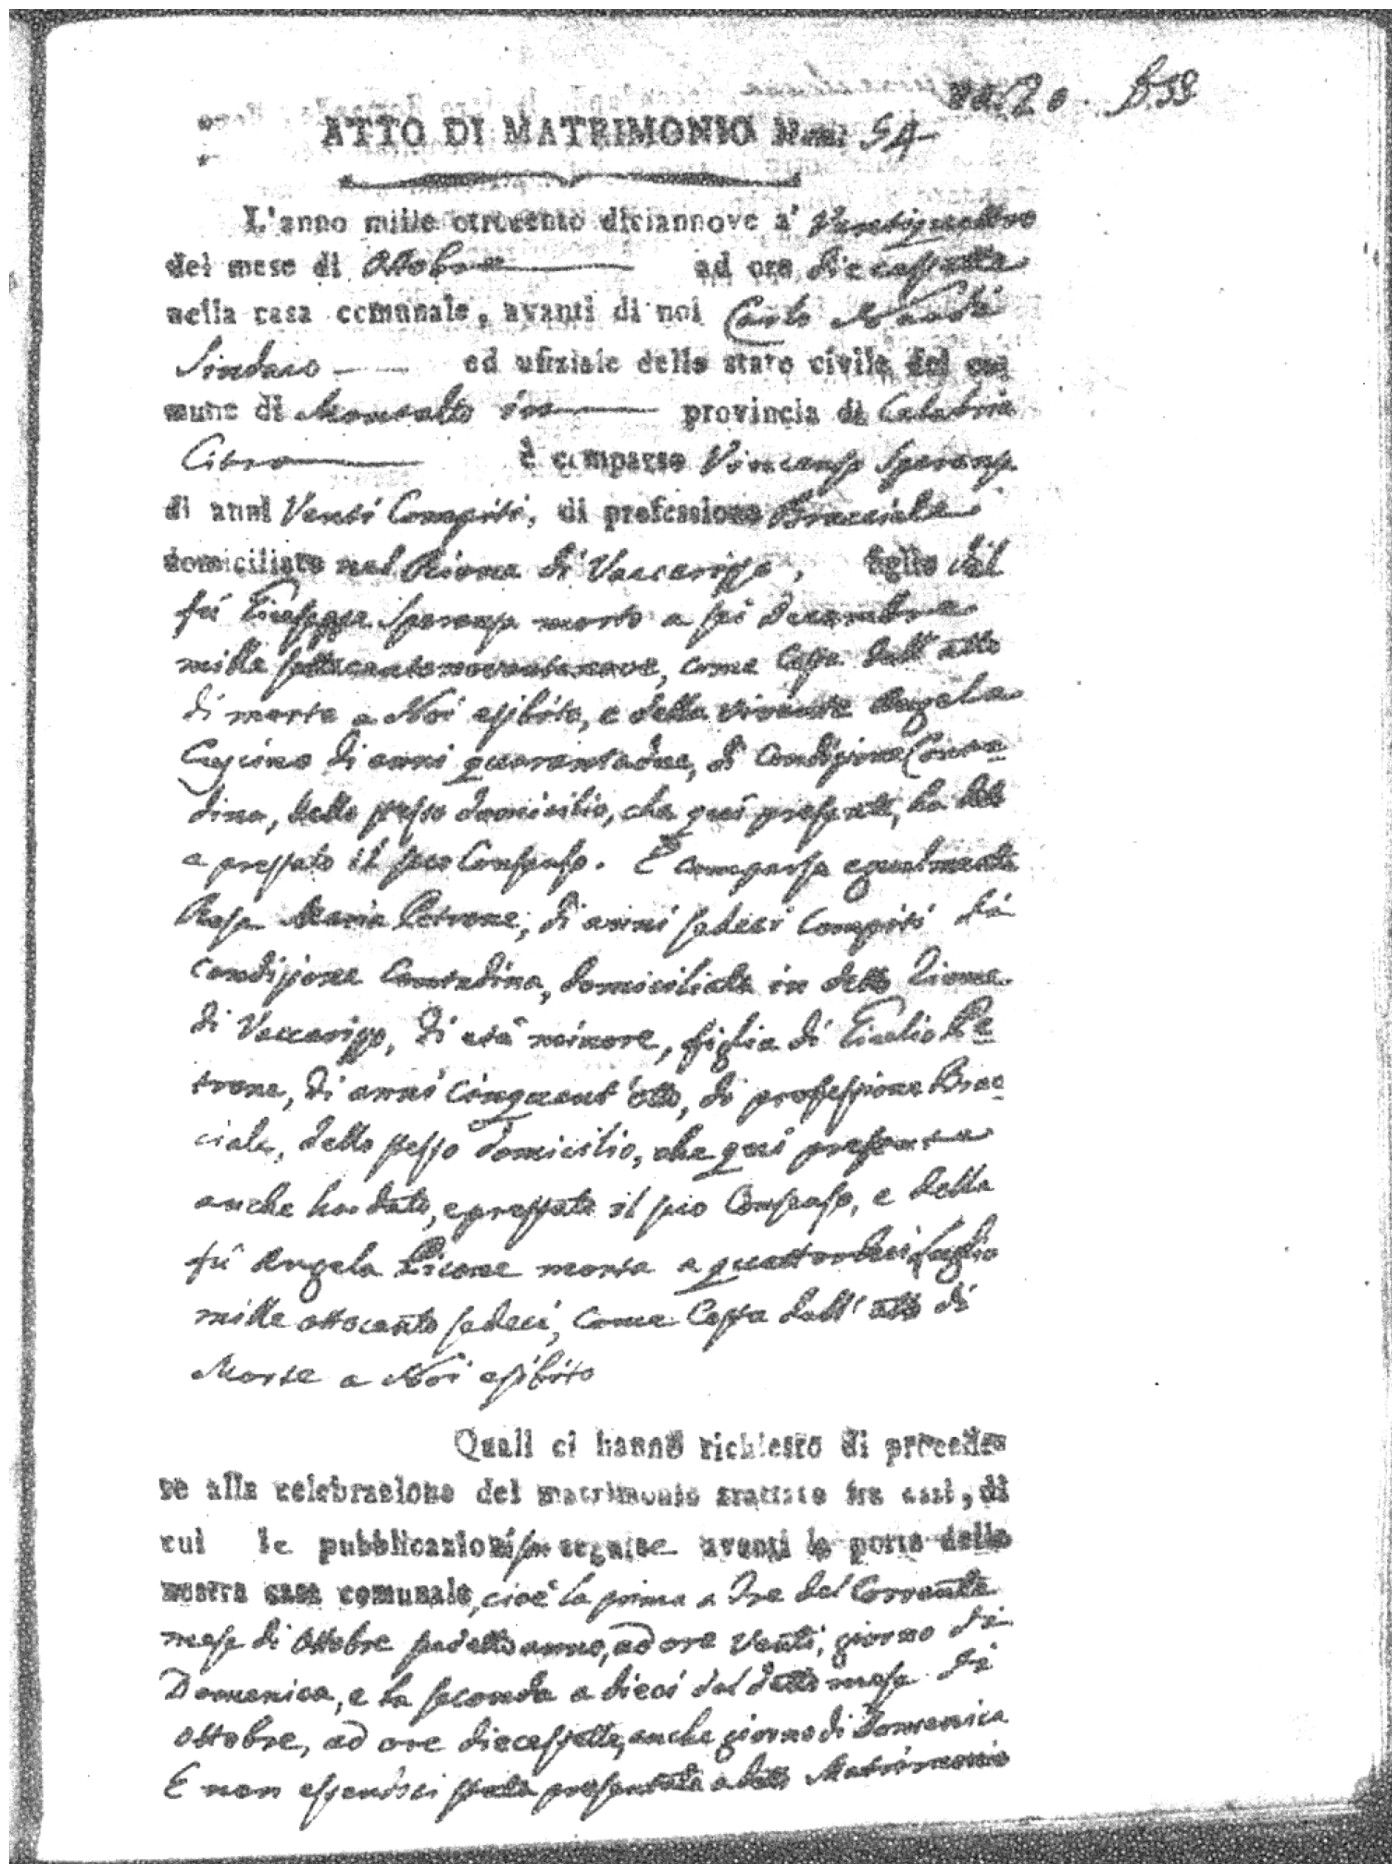 ATTO DI MATRIMONIO Num: 54
L'anno mille ottocento diciannove a' Ventiquattro
del mese di Ottobre ad ore diecessette
nella casa comunale, avanti di noi Carlo
Sindaco ed ufiziale dello stato civile del co
mune di Montalto in provincia di Calabria
Citra è comparso Vincenzo Speranza
di anni Venti Compiti, di professione Bracciale
domiciliato nel Rione di Vaccarizzo, figlio del
fù Giuseppe Speranza morto a sei decembre
mille settecentonovantanove, come Costa dall'atto
di morte a Noi esibito, e della vivente Angela
di anni quarantadue, di Condizione Conta=
dina, dello stesso domicilio, che qui presente, ha dato
e pressato il suo Consenso. È comparsa egualmente
Rosa Maria Petrone, di anni sedeci Compiti di
condizione Contadina, domiciliata in detto Rione
di Vaccarizzo, di età minore, figlia di Giulio Pe=
trone, di anni Cinquant'otto, di professione Brac=
ciale, dello stesso domicilio, che qui presente
anche ha dato, e pressato il suo Consenso, e della
fù Angela Picone morta a quattordeci Luglio
mille ottocento sedeci, come Costa dall'atto di
Morte a Noi esibito
Quali ci hanno richiesto di procede=
re alla celebrazione del matrimonio trattato fra essi, di
cui le pubblicazioni son seguite avanti la porta della
nostra casa comunale, cioè la prima a Tre del Corrente
mese di Ottobre sudetto anno, ad ore Venti, giorno di
Domenica, e la seconda a dieci del detto mese di
Ottobre, ad ore diecessette, anche giorno di Domenica
E non essendoci stata presentata a detto Matrimonio